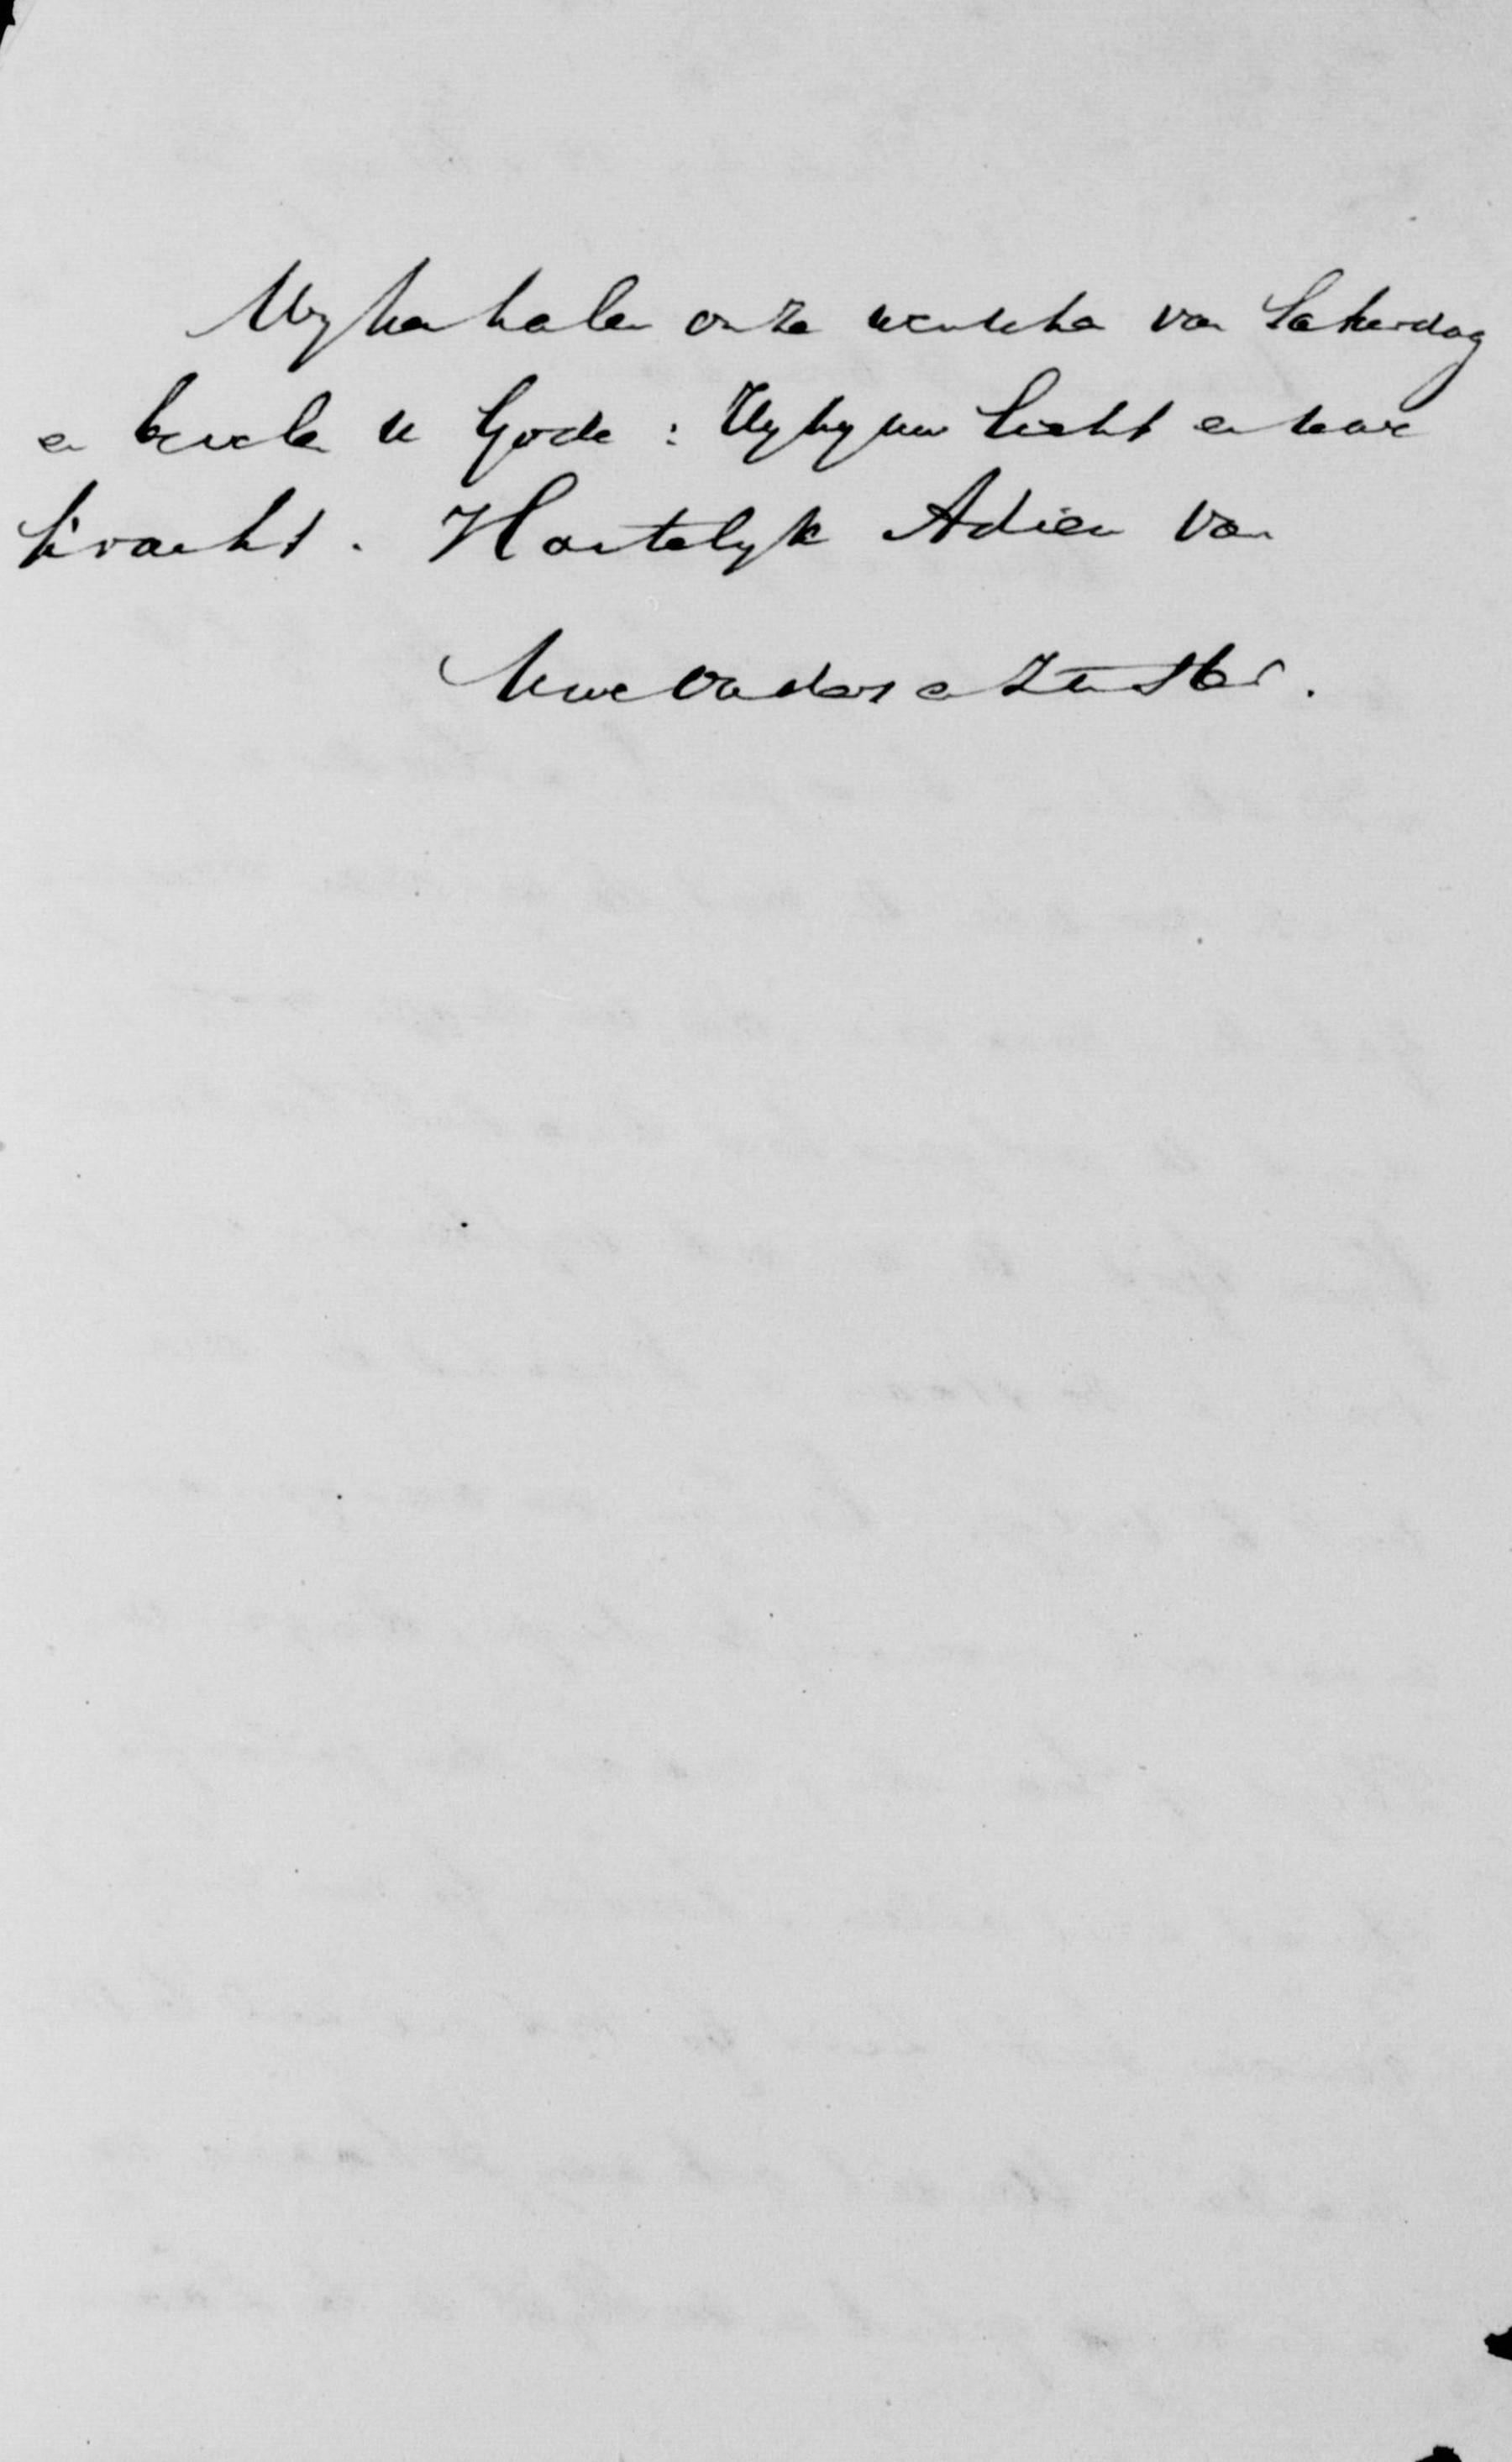 Wy herhalen onze wenschen van Saterdag
en bevelen u Gode: Hy zy uw licht en uwe
kracht. Hartelyk Adieu van
Uwe Ouders en Zuster.